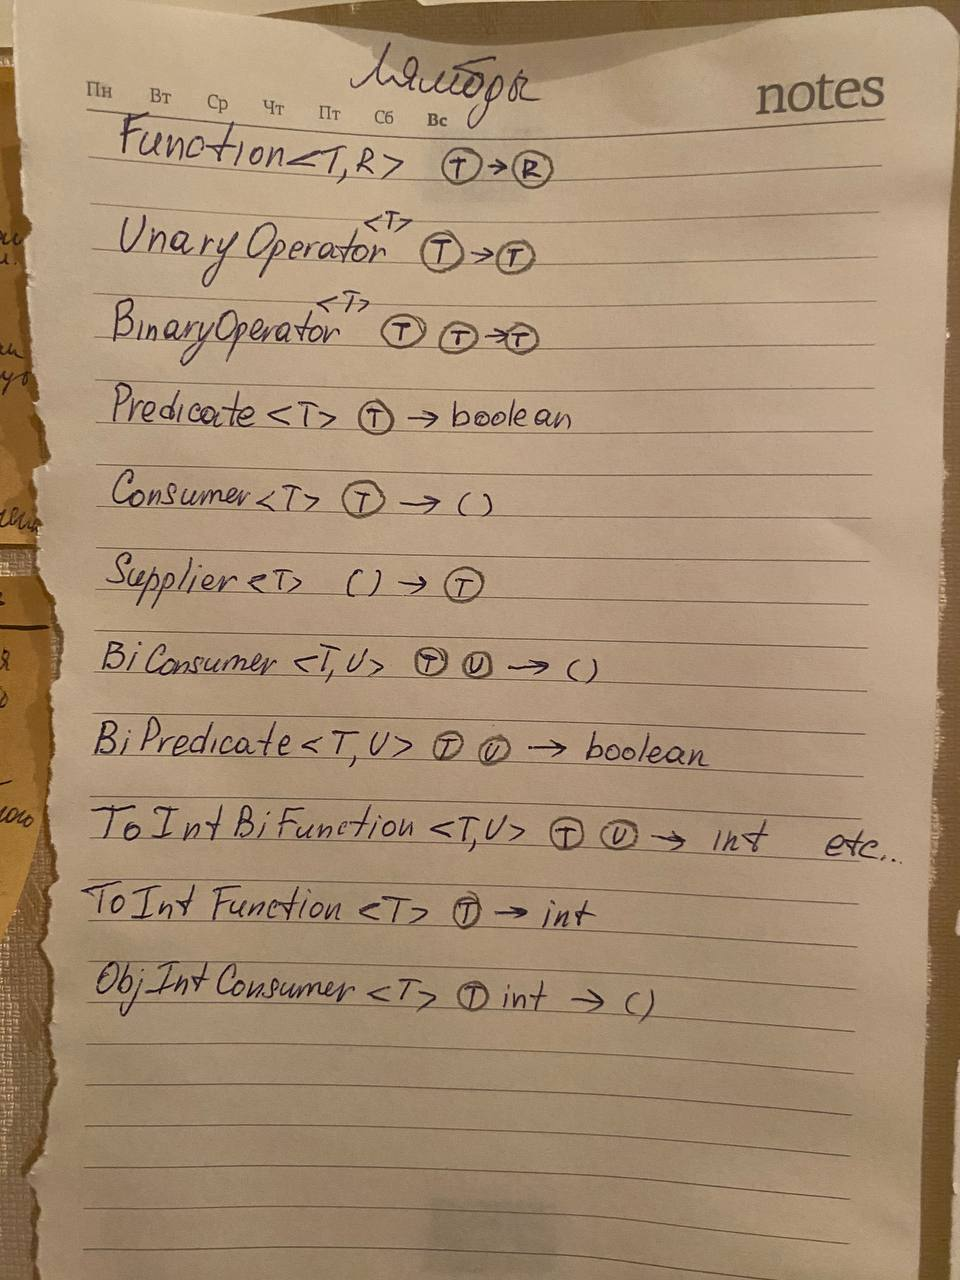 Лямбды
notes
Пн Вт Ср Чт Пт Сб Вс
Function<T,R> T → R
<T>
UnaryOperator T → T
<T>
BinaryOperator T T → T
Predicate <T> T → boolean
Consumer <T> T → ()
Supplier <T> () → T
BiConsumer <T,U> T U → ()
BiPredicate <T,U> T U → boolean
ToIntBiFunction <T,U> T U → int etc...
ToIntFunction <T> T → int
ObjIntConsumer <T> T int → ()